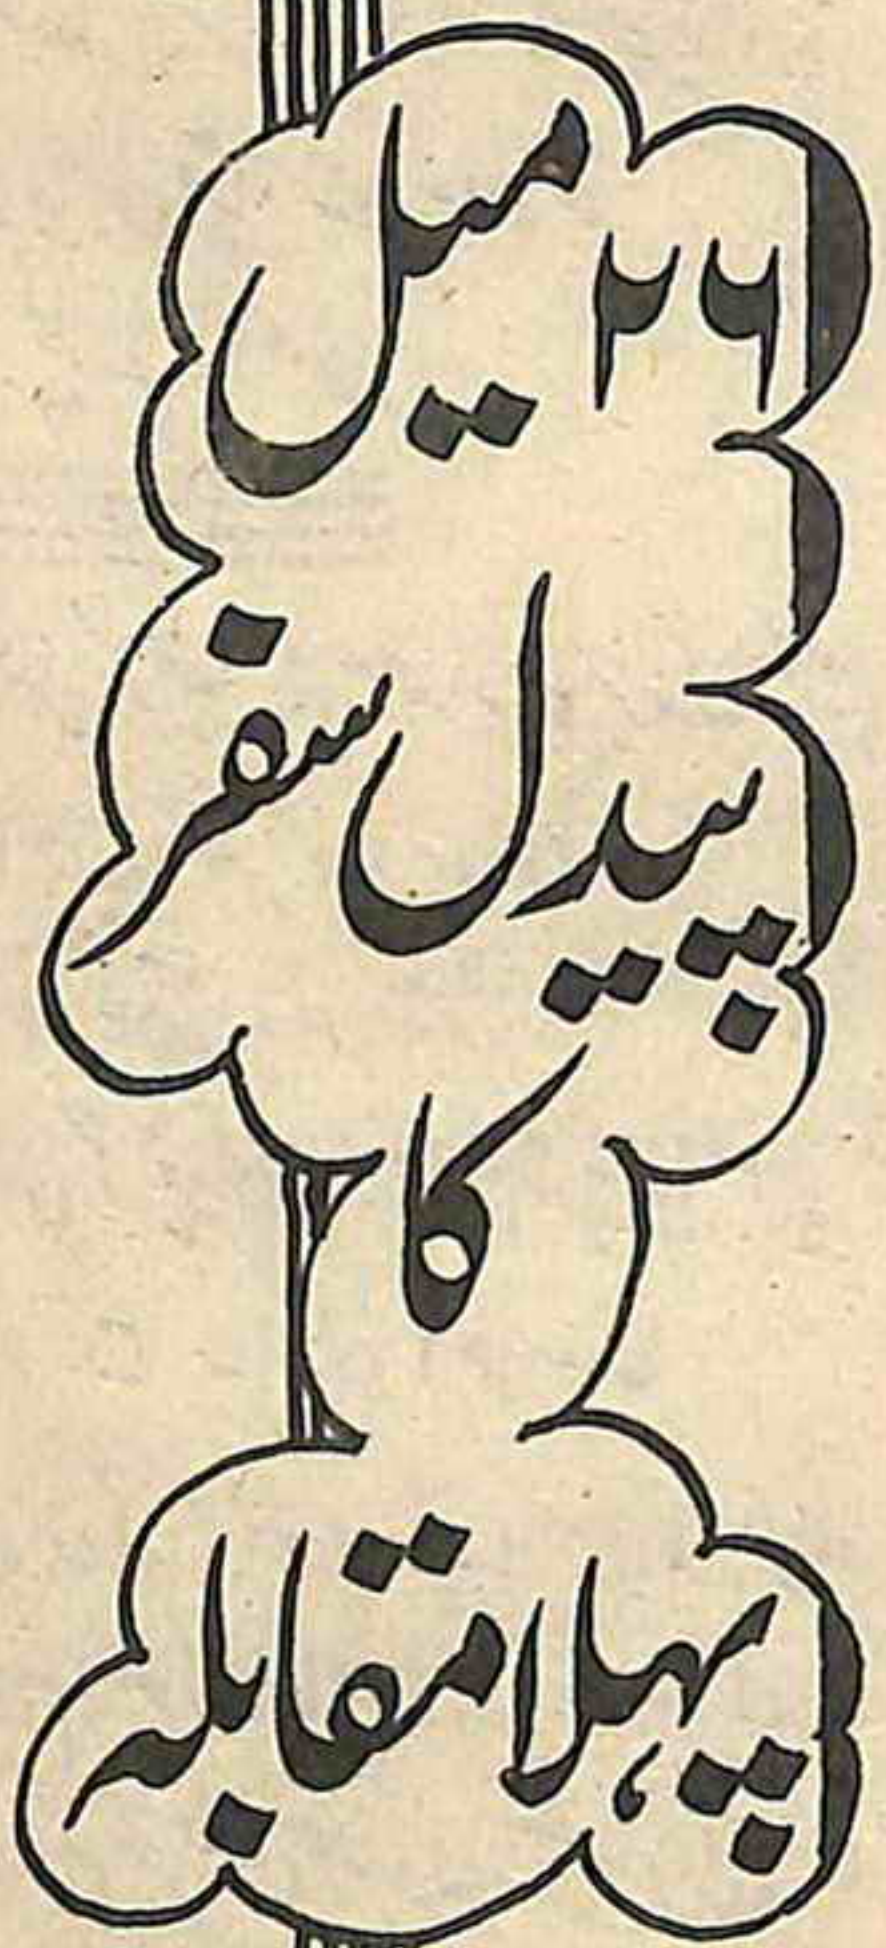 ۲۶ میل
پیدل سفر
کا
پہلا مقابلہ